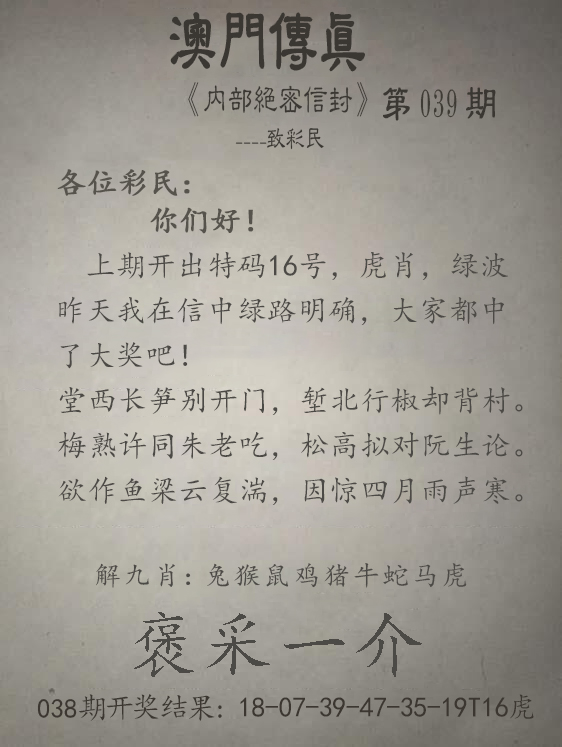 澳門傳眞
《内部絕密信封》第039期
----致彩民
各位彩民：
你们好！
上期开出特码16号，虎肖，绿波
昨天我在信中绿路明确，大家都中
了大奖吧！
堂西长笋别开门，堑北行椒却背村。
梅熟许同朱老吃，松高拟对阮生论。
欲作鱼梁云复湍，因惊四月雨声寒。
解九肖：兔猴鼠鸡猪牛蛇马虎
褒采一介
038期开奖结果：18-07-39-47-35-19T16虎